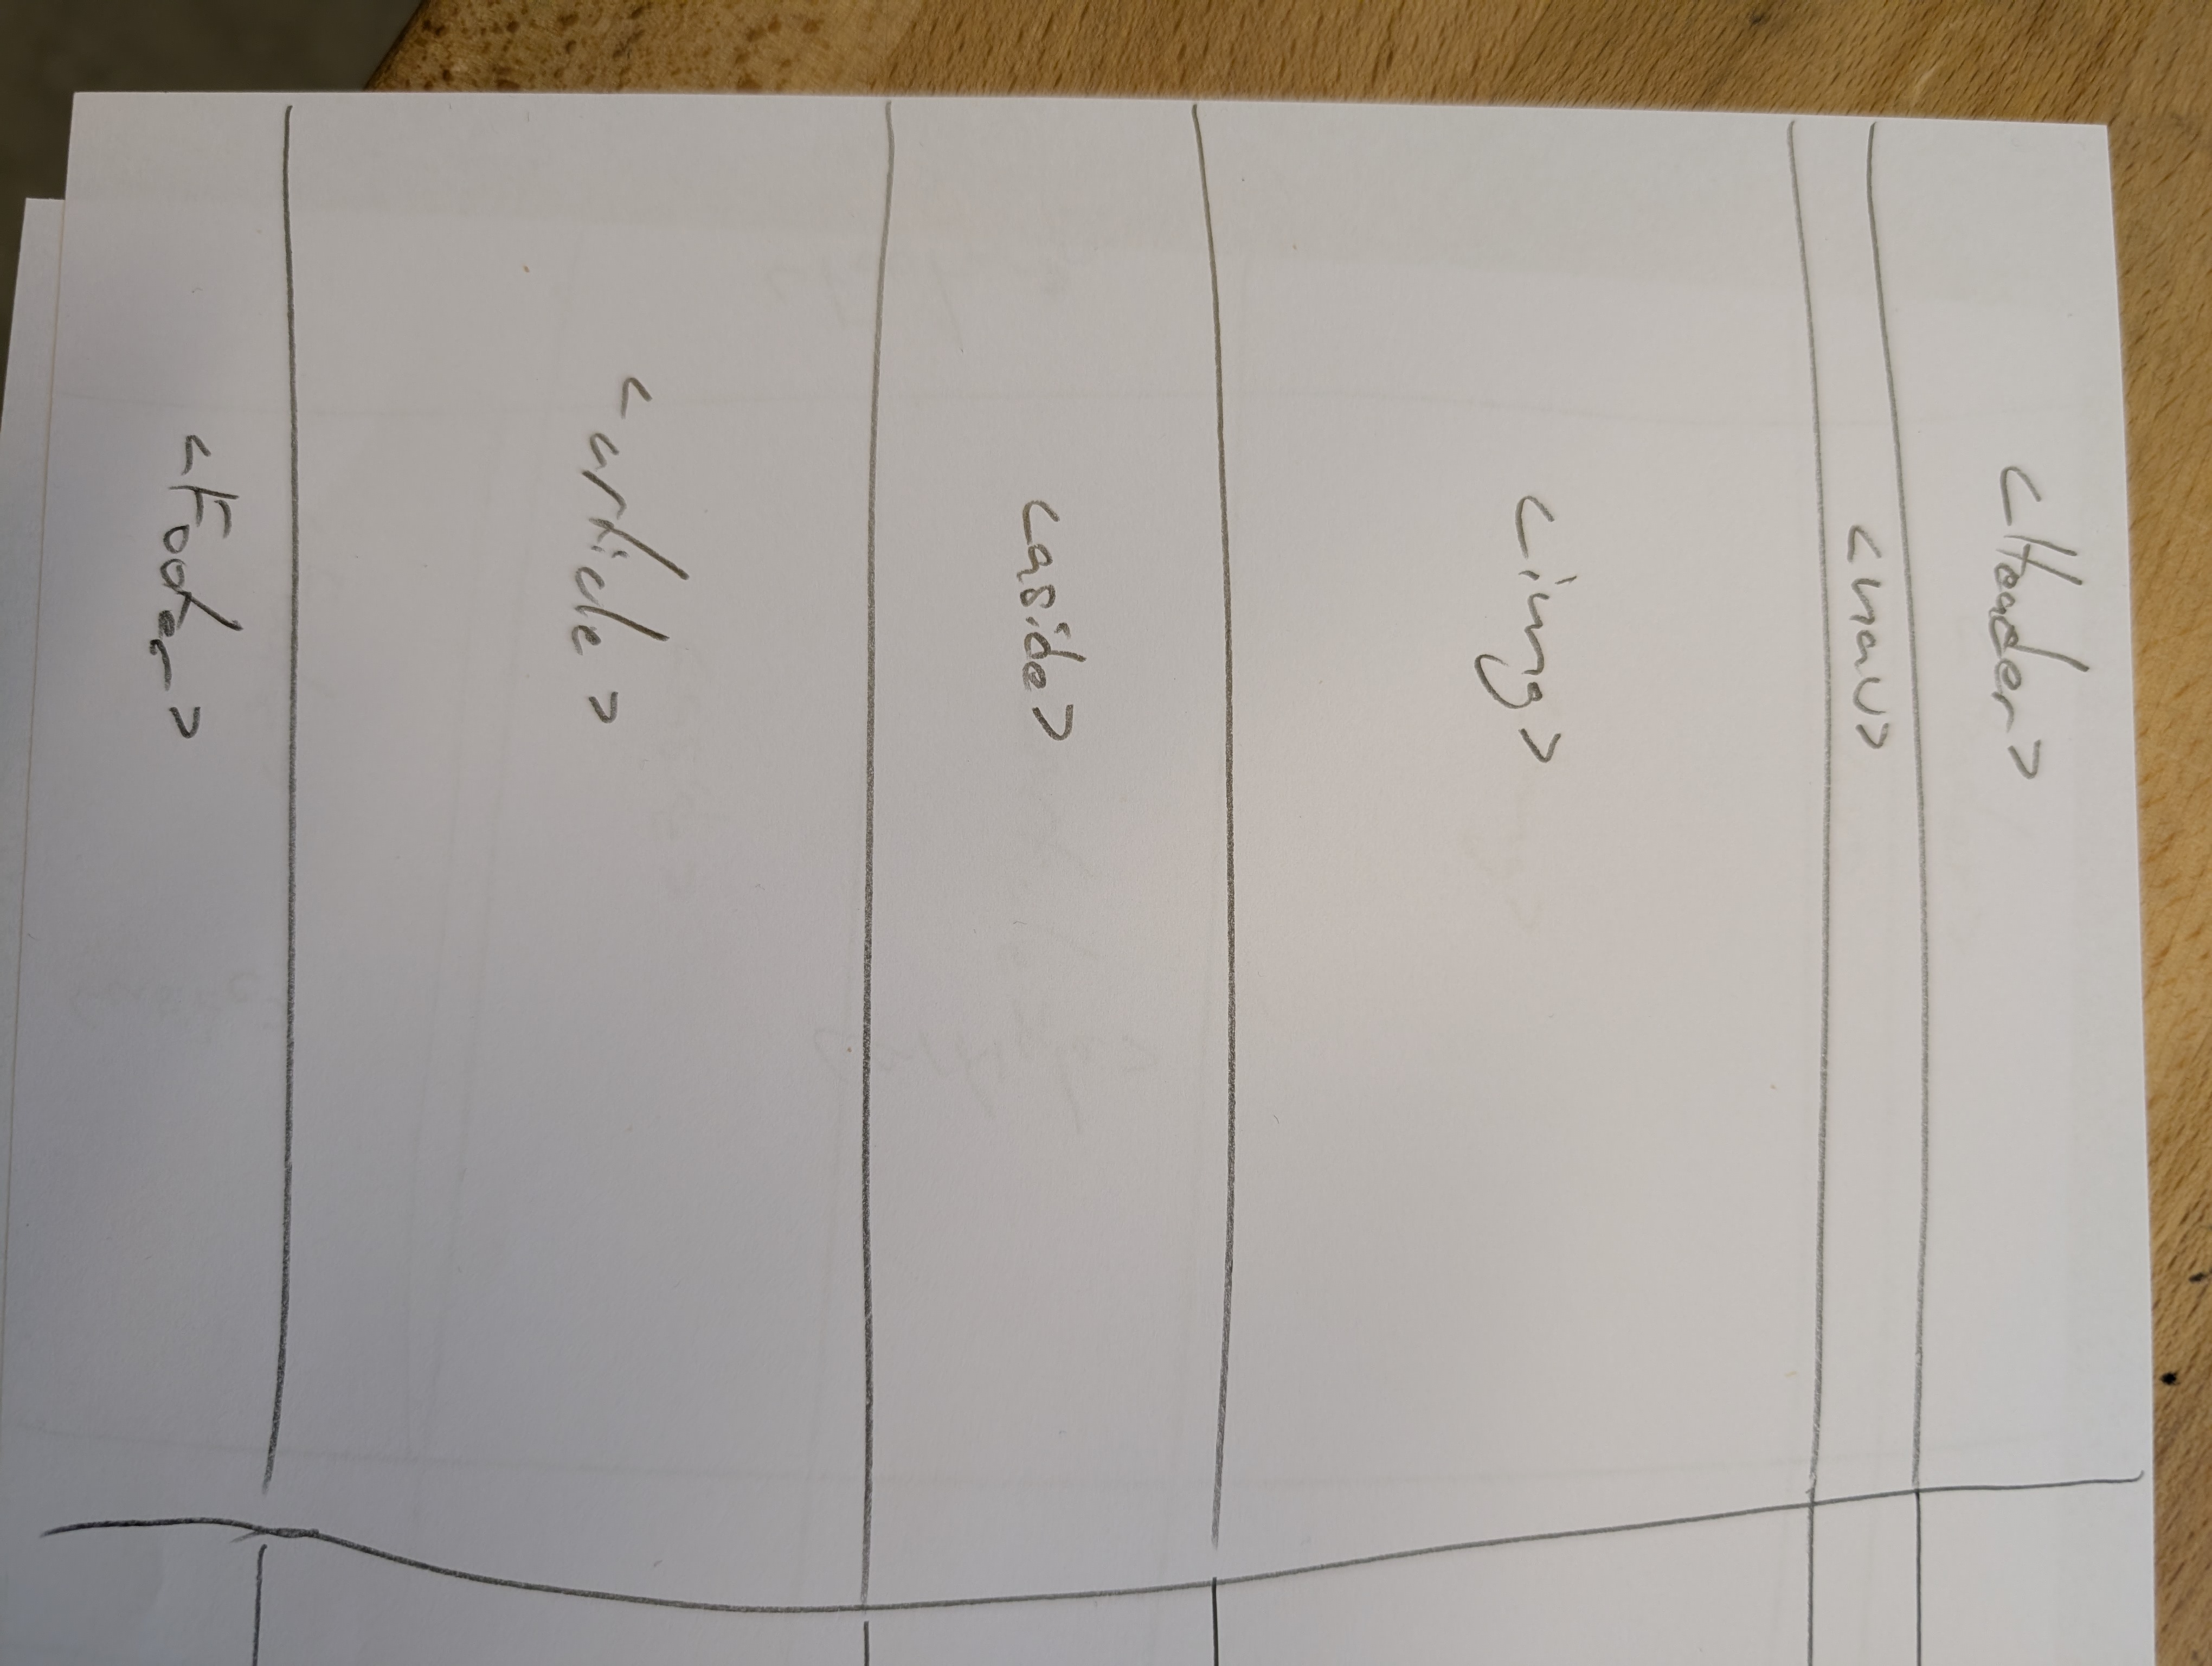 <Header>
<nav>
<img>
<aside>
<article>
<Footer>